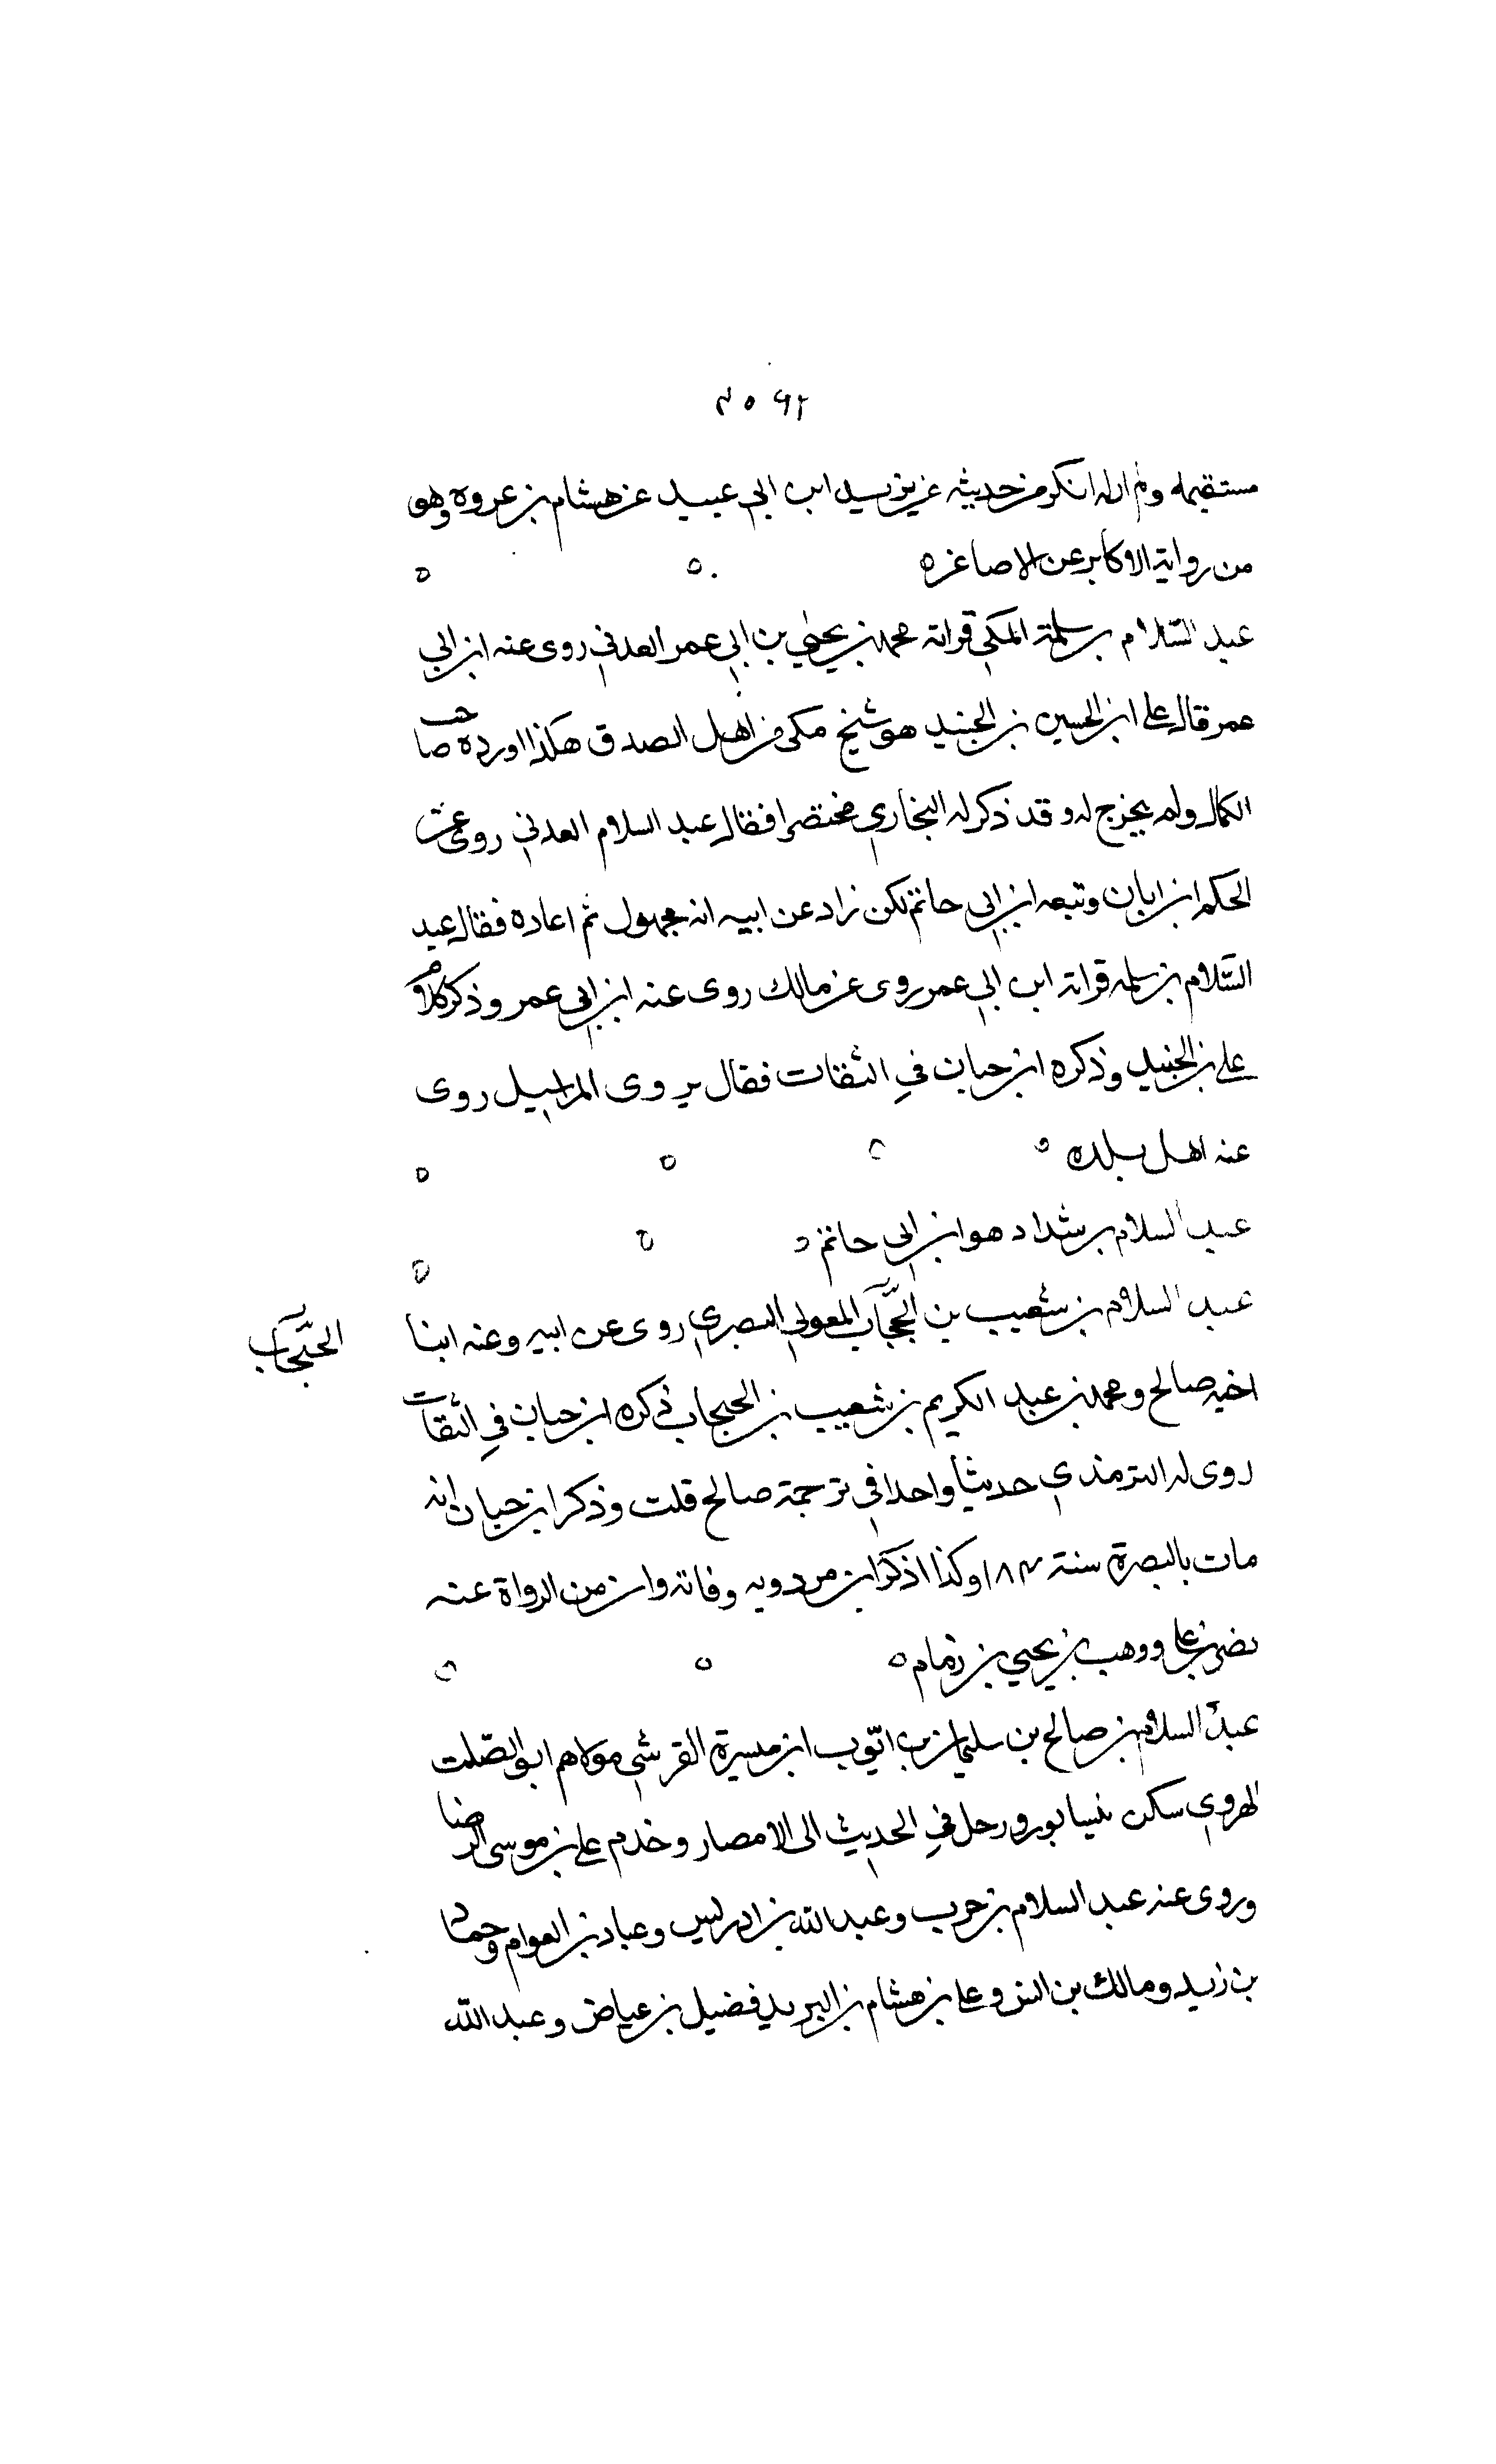 مستقيمه ولم ار له انكر من حديثه عن يزيد ابن ابي عبيد عن هشام بن عروه وهو
من رواية الاكابر عن الاصاغره
عبد السّلام بن سلمة المكي قراته محمد بن يحيى بن ابي عمر العدني روى عنه ابن ابي
عمر قال علي ابن الحسين بن الجنيد هو شيخ مكي من اهل الصدق هكذا اورده صاحب
الكمال ولم يخرج له وقد ذكر له البخاري مختصرا فقال عبد السلام العدني روى عن
الحكم ابن ابان وتبعه ابن ابي حاتم لكن زاد عن ابيه انه مجهول ثم اعاده فقال عبد
السّلام بن سلمه قراته ابن ابي عمر روى عن مالك روى عنه ابن ابي عمر وذكر كلام
علي بن الجنيد وذكره ابن حبان في الثقات فقال يروى المراسيل روى
عنه اهل بلده
عبد السلام بن شداد هو ابن ابي حاتم
عبد السلام بن شعيب بن الحبّحاب المعولي البصري روى عن ابيه وعنه ابنا
الحبّحاب
اخيه صالح ومحمد بن عبد الكريم بن شعيب بن الحبحاب ذكره ابن حبان في الثقات
روى له الترمذي حديثا واحدا في ترجمة صالح قلت وذكر ابن حبان انه
مات بالبصرة سنة ١٨٤ وكذا اذكر ابن مردويه وفاته وان من الرواة عنه
نضر بن علي ووهب بن يحيي بن زمام
عبد السلام بن صالح بن سليمان بن ايّوب ابن ميسرة القرشي مولاهم ابو الصّلت
الهروي سكن نيسابور ورحل في الحديث الى الامصار وخدم علي بن موسى الرضا
وروى عنه عبد السلام بن حرب وعبد الله بن ادريس وعباد بن العوام وحماد
بن زيد ومالك بن انس وعلي بن هشام بن البريد وفضيل بن عياض وعبد الله